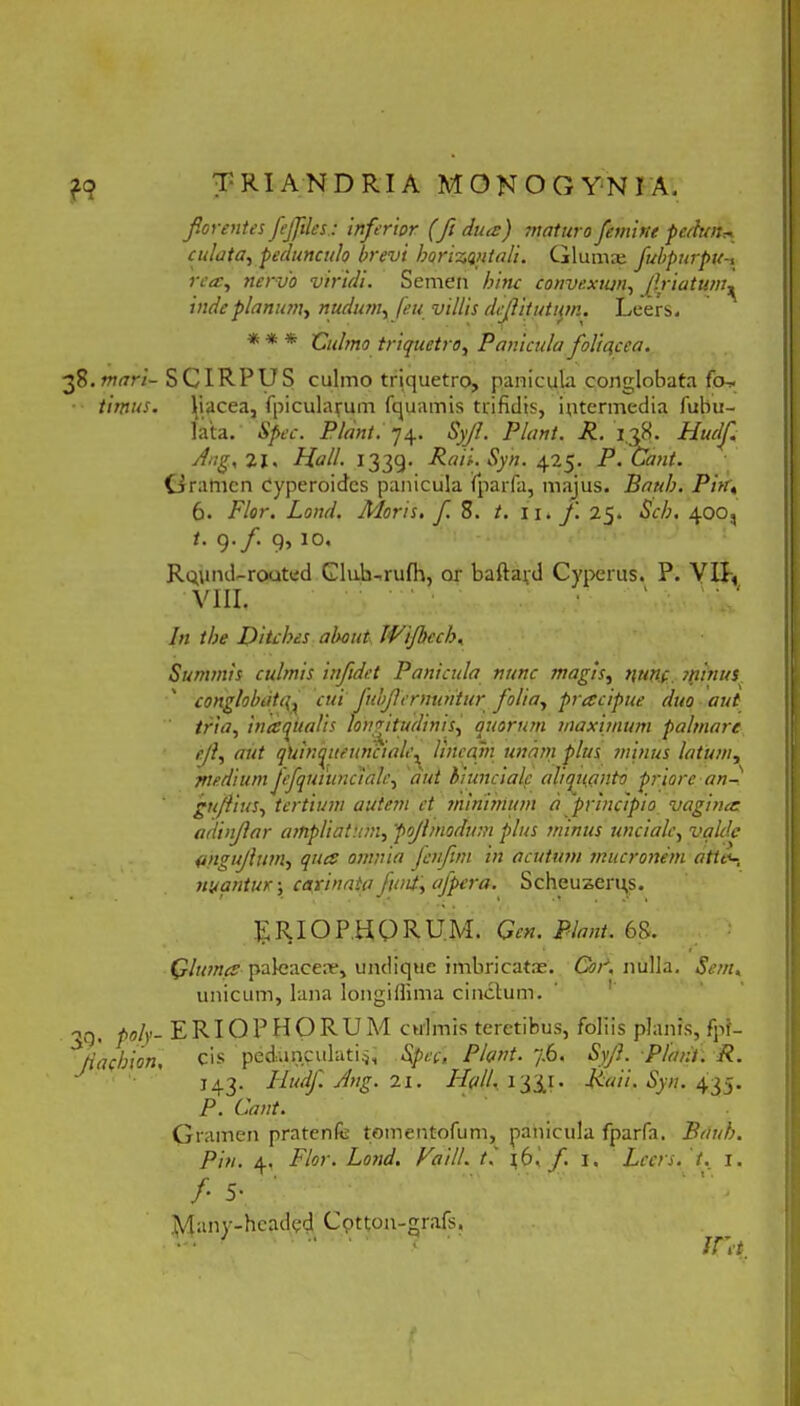 32 TRIANDRIA MONOGYNIA.
florentes ſeſſiles: inferior (ſi duæ) maturo ſemine pedun-
culata, pedunculo brevi horizontali. Glumæ ſubpurpu-
reæ, nervo viridi. Semen hinc convexum, ſtriatum,
inde planum, nudum, ſeu villis deſtitutum. Leers.
* * * Culmo triquetro, Panicula foliacea.
38. mari- SCIRPUS culmo triquetro, panicula conglobata fo-
timus. liacea, ſpicularum ſquamis trifidis, intermedia ſubu-
lata. Spec. Plant. 74. Syſt. Plant. R. 138. Hudſ.
Ang. 21. Hall. 1339. Raii. Syn. 425. P. Cant.
Gramen cyperoides panicula ſparſa, majus. Bauh. Pin.
6. Flor. Lond. Moris. ſ. 8. t. 11. f. 25. Sch. 400,
t. 9. f. 9, 10.
Round-rooted Club-ruſh, or baſtard Cyperus. P. VII,
VIII.
In the Ditches about Wiſbech.
Summis culmis inſidet Panicula nunc magis, nunc minus
conglobata, cui ſubſternuntur folia, præcipue duo aut
tria, inæqualis longitudinis, quorum maximum palmare
eſt, aut quinqueunciale, lineam unam plus minus latum,
medium ſeſquiunciale, aut biunciale aliquanto priore an-
guſtius, tertium autem et minimum a principio vaginæ
adinſtar ampliatum, poſtmodum plus minus unciale, valde
anguſtum, quæ omnia ſenſim in acutum mucronem atte-
nuantur; carinata ſunt, aſpera. Scheuzerus.
ERIOPHORUM. Gen. Plant. 68.
Glumæ paleaceæ, undique imbricatæ. Cor. nulla. Sem.
unicum, lana longiſſima cinctum.
39. poly- ERIOPHORUM culmis teretibus, foliis planis, ſpi-
ſtachion. cis pedunculatis, Spec. Plant. 76. Syſt. Plant. R.
143. Hudſ. Ang. 21. Hall. 1331. Raii. Syn. 435.
P. Cant.
Gramen pratenſe tomentoſum, panicula ſparſa. Bauh.
Pin. 4. Flor. Lond. Vaill. t. 16. f. 1. Leers. t. 1.
f. 5.
Many-headed Cotton-graſs.
Wet